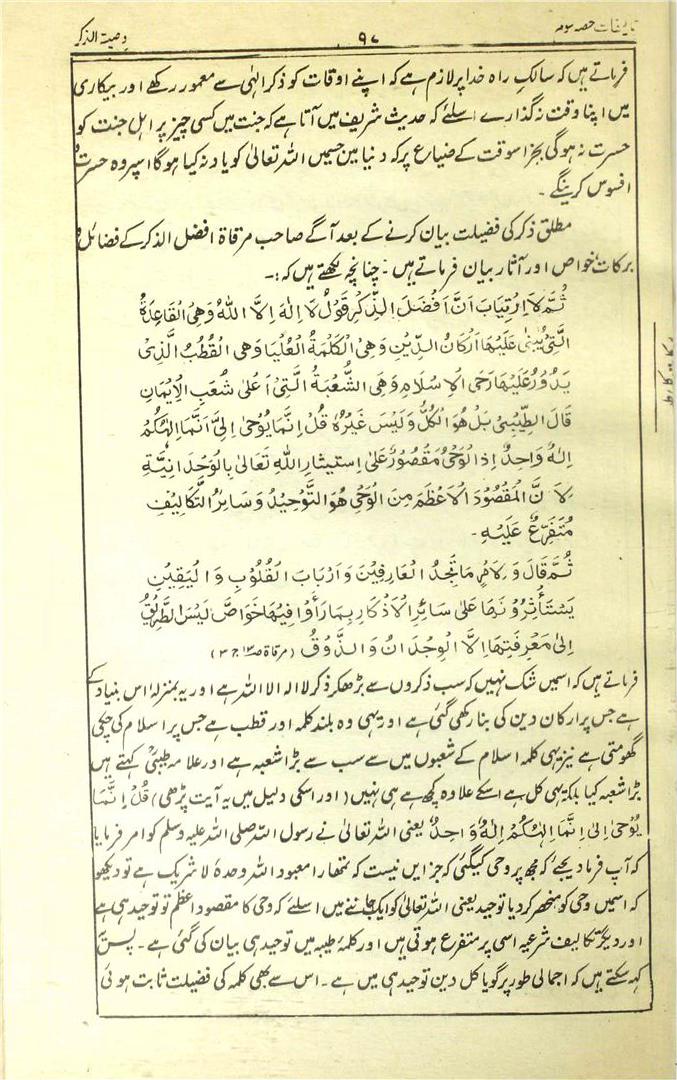 تالیفات حصہ سوم ۹۷ وصیۃ الذکر
فرماتے ہیں کہ سالکِ راہ خدا پر لازم ہے کہ اپنے اوقات کو ذکر الٰہی سے معمور رکھے اور بیکاری
میں اپنا وقت نہ گذارے اسلئے کہ حدیث شریف میں آتا ہے کہ جنت میں کسی چیز پر اہل جنت کو
حسرت نہ ہوگی بجز اسوقت کے ضیاع پر کہ دنیا میں جسمیں اللہ تعالیٰ کو یاد نہ کیا ہوگا اسپر وہ حسرت و
افسوس کرینگے ۔
مطلق ذکر کی فضیلت بیان کرنے کے بعد آگے صاحب مرقاۃ افضل الذکر کے فضائل و
برکات، خواص اور آثار بیان فرماتے ہیں ۔ چنانچہ لکھتے ہیں کہ :۔
ثُمَّ لَا اِرْتِيَابَ اَنَّ اَفْضَلَ الذِّكْرِ قَوْلُ لَا اِلٰهَ اِلَّا اللّٰهُ وَهِيَ الْقَاعِدَةُ
الَّتِيْ يُبْنٰى عَلَيْهَا اَرْكَانُ الدِّيْنِ وَهِيَ الْكَلِمَةُ الْعُلْيَا وَهِيَ الْقُطْبُ الَّذِيْ
يَدُوْرُ عَلَيْهَا رَحَى الْاِسْلَامِ وَهِيَ الشُّعْبَةُ الَّتِيْ اَعْلٰى شُعَبِ الْاِيْمَانِ
قَالَ الطِّيْبِيُّ بَلْ هُوَ الْكُلُّ وَلَيْسَ غَيْرُهٗ قُلْ اِنَّمَا يُوْحٰى اِلَيَّ اَنَّمَا اِلٰهُكُمْ
اِلٰهٌ وَاحِدٌ اِذِ الْوَحْيُ مَقْصُوْرٌ عَلٰى اِسْتِيْثَارِ اللّٰهِ تَعَالٰى بِالْوَحْدَانِيَّةِ
لِاَنَّ الْمَقْصُوْدَ الْاَعْظَمَ مِنَ الْوَحْيِ هُوَ التَّوْحِيْدُ وَسَائِرُ التَّكَالِيْفِ
مُتَفَرِّعٌ عَلَيْهِ ۔
ثُمَّ قَالَ وَلِاَمْرٍ مَا تَجِدُ الْعَارِفِيْنَ وَاَرْبَابَ الْقُلُوْبِ وَالْيَقِيْنِ
يَسْتَأْثِرُوْنَهَا عَلٰى سَائِرِ الْاَذْكَارِ بِمَا رَأَوْا فِيْهَا خَوَاصَّ لَيْسَ الطَّرِيْقُ
اِلٰى مَعْرِفَتِهَا اِلَّا الْوِجْدَانُ وَالذَّوْقُ (مرقاۃ ج ۳)
فرماتے ہیں کہ اسمیں شک نہیں کہ سب ذکروں سے بڑھکر ذکر لا الہ الا اللہ ہے اور یہ بمنزلہ اس بنیاد کے
ہے جس پر ارکان دین کی بنا رکھی گئی ہے اور یہی وہ بلند کلمہ اور قطب ہے جس پر اسلام کی چکی
گھومتی ہے نیز یہی کلمہ اسلام کے شعبوں میں سے سب سے بڑا شعبہ ہے اور علامہ طیبیؒ کہتے ہیں
بڑا شعبہ کیا بلکہ یہی کل ہے اسکے علاوہ کچھ ہے ہی نہیں (اور اسکی دلیل میں یہ آیت پڑھی) قُلْ اِنَّمَا
يُوْحٰى اِلَيَّ اَنَّمَا اِلٰهُكُمْ اِلٰهٌ وَاحِدٌ یعنی اللہ تعالیٰ نے رسول اللہ صلی اللہ علیہ وسلم کو امر فرمایا
کہ آپ فرما دیجئے کہ مجھ پر وحی کیگئی کہ جز ایں نیست کہ تمھارا معبود اللہ وحدہٗ لا شریک ہے تو دیکھو
کہ اسمیں وحی کو منحصر کر دیا توحید یعنی اللہ تعالیٰ کو ایک جاننے میں اسلئے کہ وحی کا مقصود اعظم تو توحید ہی ہے
اور دیگر تکالیف شرعیہ اسی پر متفرع ہوتی ہیں اور کلمۂ طیبہ میں توحید ہی بیان کی گئی ہے ۔ پس
کہہ سکتے ہیں کہ اجمالی طور پر گویا کل دین توحید ہی میں ہے ۔ اس سے بھی کلمہ کی فضیلت ثابت ہوئی